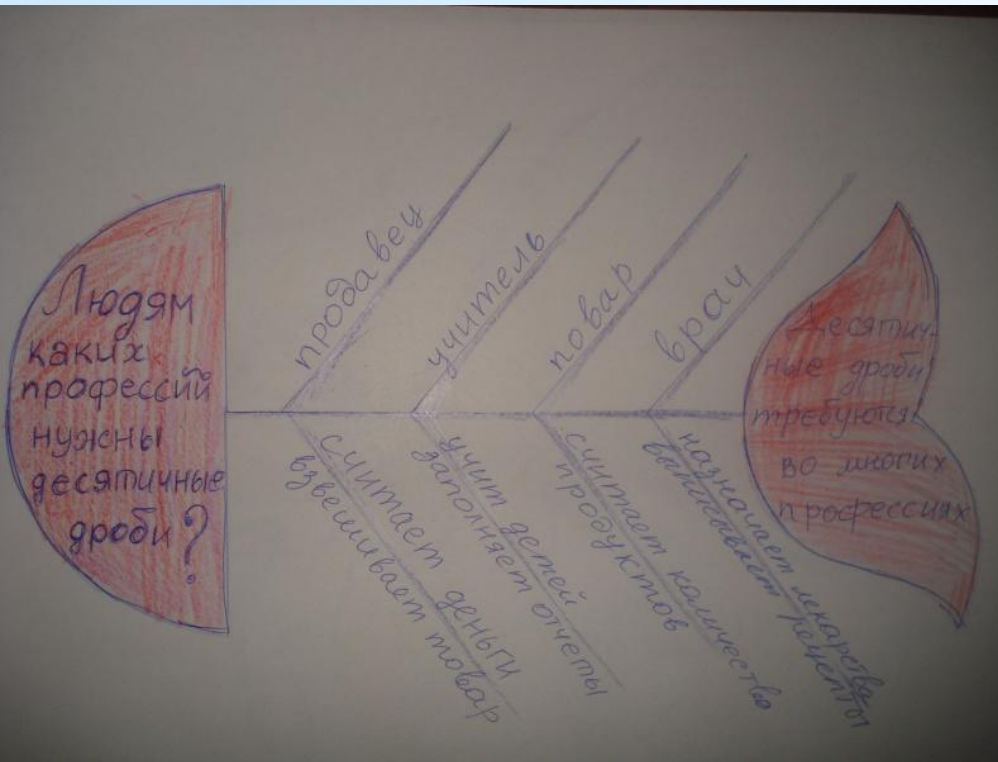 Людям
каких
профессий
нужны
десятичные
дроби?
продавец
учитель
повар
врач
считает деньги
взвешивает товар
учит детей
заполняет отчеты
считает количество
продуктов
назначает лекарства
выписывает рецепты
Десятич-
ные дроби
требуются
во многих
профессиях